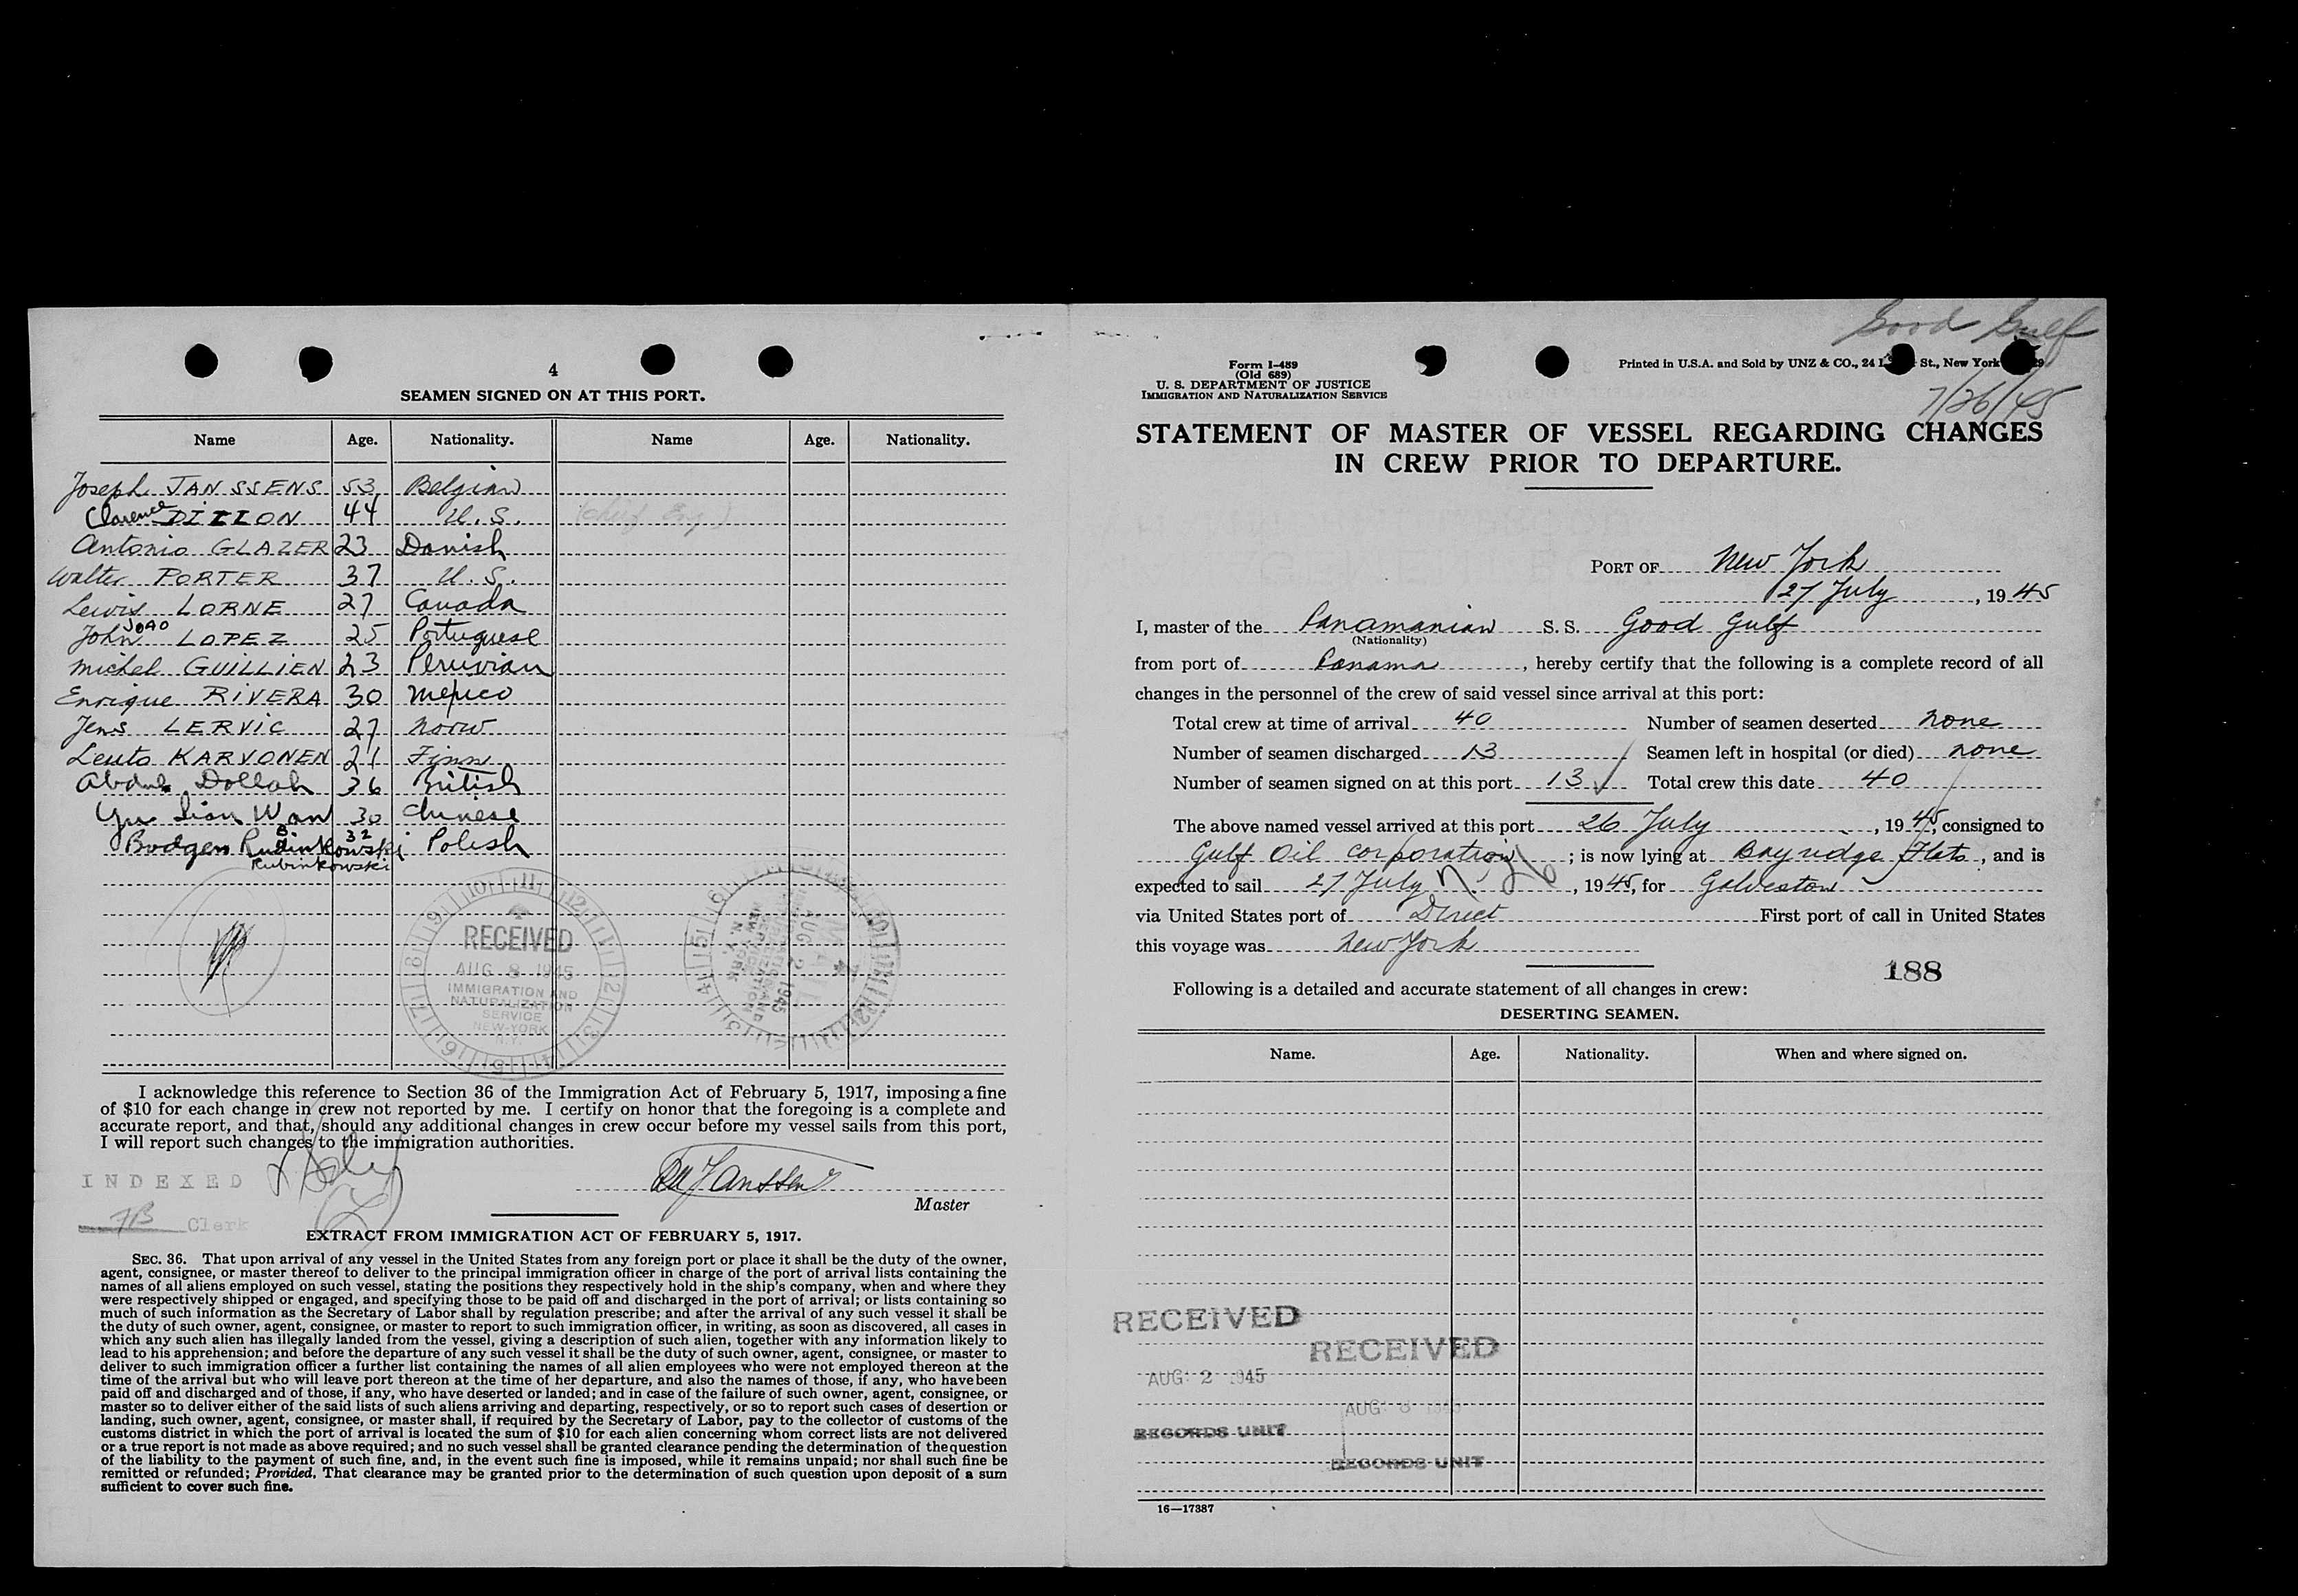 4
SEAMEN SIGNED ON AT THIS PORT.
Name Age. Nationality. Name Age. Nationality.
Joseph JANSSENS 53 Belgian
Clarence DILLON 44 U.S. (Chief Eng.)
Antonio GLAZER 23 Danish
Walter PORTER 37 U.S.
Lewis LORNE 27 Canada
John JOAO LOPEZ 25 Portuguese
Michel GUILLIEN 23 Peruvian
Enrique RIVERA 30 Mexico
Jens LERVIC 27 Norw
Leuto KARVONEN 21 Finn
Abdul Dollah 36 British
Yu Sian Wan 30 Chinese
Bodgen Rudinkowski 32 Polish
B
Rubinkowski
RECEIVED
AUG 8 1945
IMMIGRATION AND
NATURALIZATION
SERVICE
NEW-YORK
N.Y.
AUG 2 1945
I acknowledge this reference to Section 36 of the Immigration Act of February 5, 1917, imposing a fine
of $10 for each change in crew not reported by me. I certify on honor that the foregoing is a complete and
accurate report, and that, should any additional changes in crew occur before my vessel sails from this port,
I will report such changes to the immigration authorities.
INDEXED
JB Clerk
Janssens
Master
EXTRACT FROM IMMIGRATION ACT OF FEBRUARY 5, 1917.
SEC. 36. That upon arrival of any vessel in the United States from any foreign port or place it shall be the duty of the owner,
agent, consignee, or master thereof to deliver to the principal immigration officer in charge of the port of arrival lists containing the
names of all aliens employed on such vessel, stating the positions they respectively hold in the ship's company, when and where they
were respectively shipped or engaged, and specifying those to be paid off and discharged in the port of arrival; or lists containing so
much of such information as the Secretary of Labor shall by regulation prescribe; and after the arrival of any such vessel it shall be
the duty of such owner, agent, consignee, or master to report to such immigration officer, in writing, as soon as discovered, all cases in
which any such alien has illegally landed from the vessel, giving a description of such alien, together with any information likely to
lead to his apprehension; and before the departure of any such vessel it shall be the duty of such owner, agent, consignee, or master to
deliver to such immigration officer a further list containing the names of all alien employees who were not employed thereon at the
time of the arrival but who will leave port thereon at the time of her departure, and also the names of those, if any, who have been
paid off and discharged and of those, if any, who have deserted or landed; and in case of the failure of such owner, agent, consignee, or
master so to deliver either of the said lists of such aliens arriving and departing, respectively, or so to report such cases of desertion or
landing, such owner, agent, consignee, or master shall, if required by the Secretary of Labor, pay to the collector of customs of the
customs district in which the port of arrival is located the sum of $10 for each alien concerning whom correct lists are not delivered
or a true report is not made as above required; and no such vessel shall be granted clearance pending the determination of the question
of the liability to the payment of such fine, and, in the event such fine is imposed, while it remains unpaid; nor shall such fine be
remitted or refunded; Provided, That clearance may be granted prior to the determination of such question upon deposit of a sum
sufficient to cover such fine.
Good Gulf
Form I-489
(Old 689)
U. S. DEPARTMENT OF JUSTICE
IMMIGRATION AND NATURALIZATION SERVICE
Printed in U.S.A. and Sold by UNZ & CO., 24 St., New York
7/26/45
STATEMENT OF MASTER OF VESSEL REGARDING CHANGES
IN CREW PRIOR TO DEPARTURE.
PORT OF New York
27 July, 1945
I, master of the Panamanian S. S. Good Gulf
(Nationality)
from port of Panama, hereby certify that the following is a complete record of all
changes in the personnel of the crew of said vessel since arrival at this port:
Total crew at time of arrival 40 Number of seamen deserted none
Number of seamen discharged 13 Seamen left in hospital (or died) none
Number of seamen signed on at this port 13 ✓ Total crew this date 40
The above named vessel arrived at this port 26 July, 1945, consigned to
Gulf Oil Corporation; is now lying at Bayridge Flats, and is
expected to sail 27 July, 1945, for Galveston
via United States port of Direct First port of call in United States
this voyage was New York
188
Following is a detailed and accurate statement of all changes in crew:
DESERTING SEAMEN.
Name. Age. Nationality. When and where signed on.
RECEIVED
RECEIVED
AUG 2 1945
AUG 8 1945
RECORDS UNIT
RECORDS UNIT
16—17387